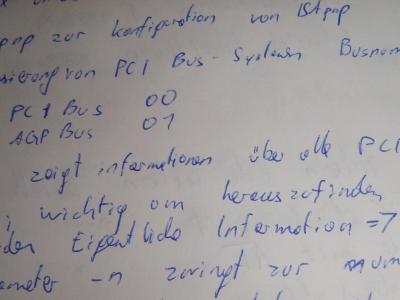 pnp zur Konfiguration von ISApnp
sierung von PCI Bus-Systemen Busnum
PCI Bus 00
AGP Bus 01
zeigt informationen über alle PCI
wichtig om herauszufinden
den Eigentliche Information =7
ameter -n zwingt zur num